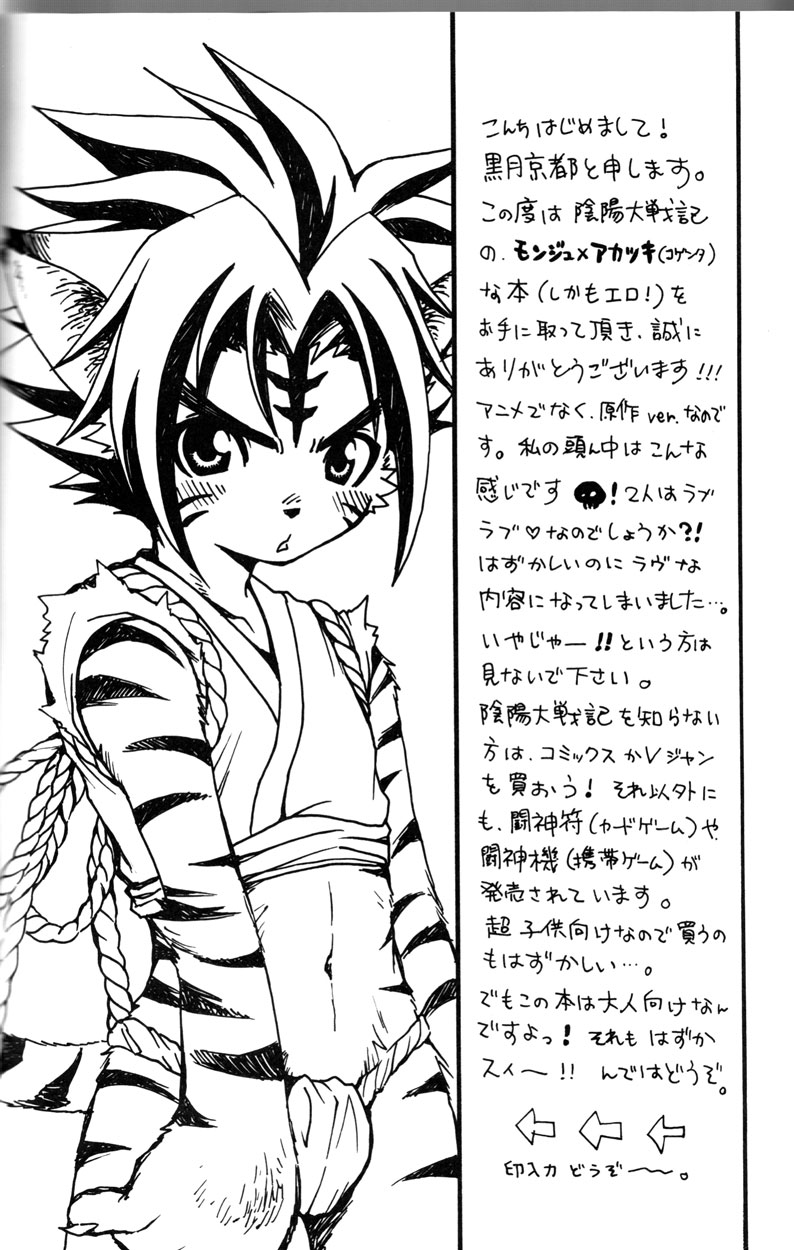 こんちはじめまして!
黒月京都と申します。
この度は 陰陽大戦記
の、モンジュ×アカツキ(コゲンタ)
な本(しかもエロ!)を
お手に取って頂き、誠に
ありがとうございます!!!
アニメでなく、原作ver.なので
す。私の頭ん中はこんな
感じです !2人はラブ
ラブ♡なのでしょうか?!
はずかしいのに ラヴな
内容になってしまいました…。
いやじゃー!!という方は
見ないで下さい。
陰陽大戦記を知らない
方は、コミックスかVジャン
を買おう! それ以外に
も、闘神符(カードゲーム)や
闘神機(携帯ゲーム)が
発売されています。
超 子供向けなので買うの
もはずかしい…。
でもこの本は大人向けなん
ですよっ! それも はずか
スィ〜!! んではどうぞ。
どうぞ〜〜。